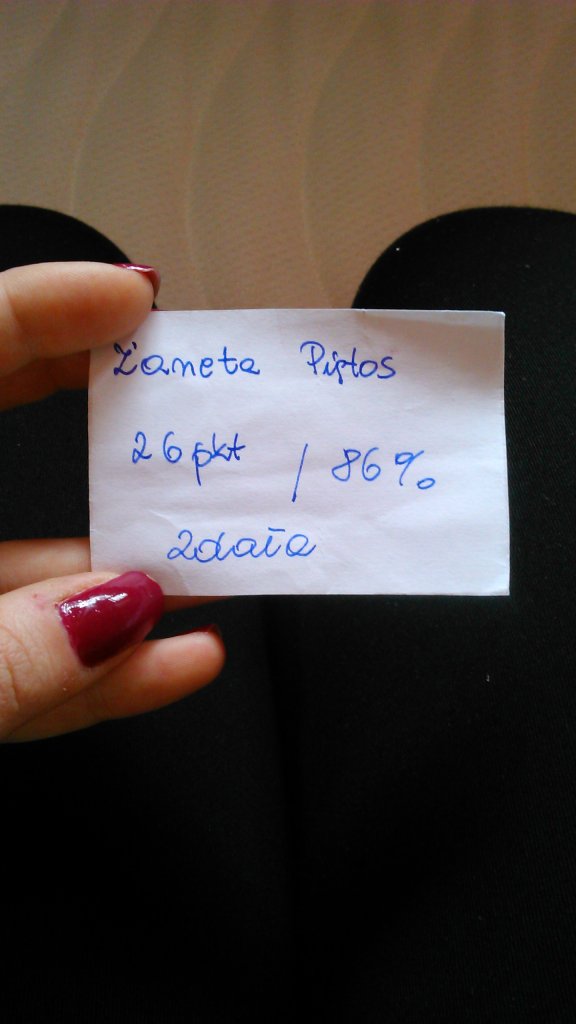 Żaneta Piętos
26 pkt / 86%
zdała